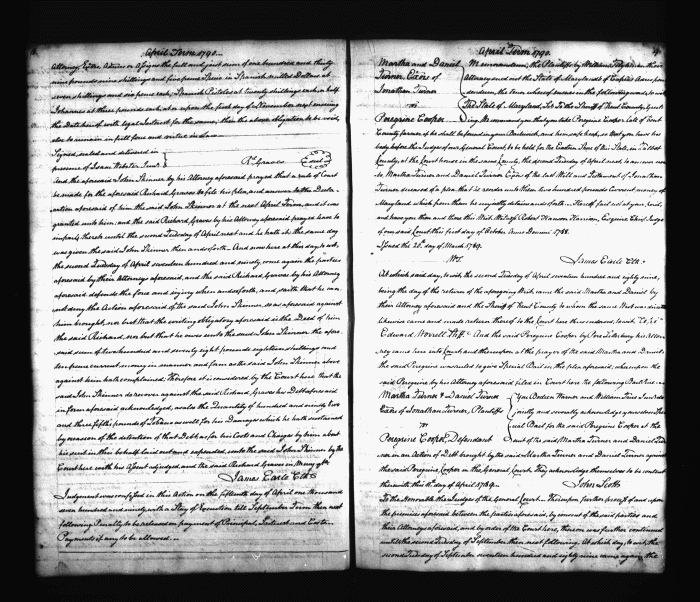 April Term 1790
Attorney Exrs. Admrs or Assigns the full and just sum of one hundred and thirty
nine pounds nine shillings and five pence Specie in Spanish milled Dollars at
seven shillings and six pence each, Spanish Pistoles at twenty shillings each or half
Johannes at three pounds each, at or upon the first day of November next ensuing
the Date hereof with legal Interest for the same, then the above obligation to be void,
else to remain in full force and virtue in Law
Signed sealed and delivered in
presence of Isaac Webster Junr. Rd. Graves Seal
And the aforesaid John Skinner by his Attorney aforesaid prayed that a rule of Court
be made for the aforesaid Richard Graves to file his plea, and answer to the Decla-
ration aforesaid of him the said John Skinner at the next April Term, and it was
granted unto him, and the said Richard Graves by his Attorney aforesaid prayed leave to
imparle thereto until the second Tuesday of April next and he hath it; the same day
was given the said John Skinner then and so forth. And now here at this day to wit,
the second Tuesday of April seventeen hundred and ninety, come again the parties
aforesaid by their Attorneys aforesaid, and the said Richard Graves by his Attorney
aforesaid defends the force and injury when and so forth, and saith that he can
not deny the Action aforesaid of the said John Skinner, so as aforesaid against
him brought, nor but that the writing obligatory aforesaid is the Deed of him
the said Richard, nor but that he owes unto the said John Skinner the afore-
said sum of two hundred and seventy eight pounds eighteen shillings and
ten pence current money in manner and form as the said John Skinner above
against him hath complained; Therefore it is considered by the Court here that the
said John Skinner do recover against the said Richard Graves his Debt aforesaid
in form aforesaid acknowledged, and also the quantity of hundred and ninety two
and three fifths pounds of Tobacco as well for his Damages which he hath sustained
by reason of the detention of that Debt as for his Costs and Charges by him about
his suit in that behalf laid out and expended, unto the said John Skinner by the
Court here with his Assent adjudged, and the said Richard Graves in Mercy &c.
James Earle Clk.
Judgment was confessed in this Action on the fifteenth day of April one thousand
seven hundred and ninety with a Stay of Execution till September Term then next
following, Penalty to be released on payment of Principal, Interest and Costs.
Payments if any to be allowed
April Term 1790
Martha and Daniel
Turner Exrs. of
Jonathan Turner
vs
Peregrine Cooper
Memorandum, the Plaintiffs by William their
Attorney sued out the State of Maryland's of Capias Ad respon-
dendum, the tenor whereof ensues in the following words, to wit
The State of Maryland, To the Sheriff of Kent County, Greet-
ing We command you that you take Peregrine Cooper late of Kent
County farmer if he shall be found in your Bailiwick, and him safe keep, so that you have his
body before the Judges of our General Court, to be held for the Eastern Shore of this State, in Talbot
County, at the Court house in the same County, the second Tuesday of April next, to answer unto
to Martha Turner and Daniel Turner Exrs. of the last Will and Testament of Jonathan
Turner deceased of a plea that he render unto them two hundred pounds Current money of
Maryland which from them he unjustly detains and so forth. Hereof fail not at your peril,
and have you then and there this Writ. Witness Robert Hanson Harrison, Esquire Chief Judge
of our said Court this first day of October Anno Domini 1788.
Issued the 20th. day of March 1789.
James Earle Clk.
At which said day, to wit the second Tuesday of April seventeen hundred and eighty nine,
being the day of the return of the aforegoing Writ, came the said Martha and Daniel by
their Attorney aforesaid and the Sheriff of Kent County to whom the same Writ was directed
likewise came and made return thereof to the Court here thus endorsed, to wit,
Edward Worrell Shff. And the said Peregrine Cooper by his Attor-
ney came here into Court and thereupon at the prayer of the said Martha and Daniel
the said Peregrine was ruled to give Special Bail in the plea aforesaid; whereupon the
said Peregrine by his Attorney aforesaid filed in Court here the following Bail Piece
Martha Turner & Daniel Turner
Exrs. of Jonathan Turner, Plaintiffs
vs
Peregrine Cooper, Defendant
You and William
jointly and severally acknowledge yourselves
cial Bail for the said Peregrine Cooper at the
suit of the said Martha Turner and Daniel Tur-
ner in an Action of Debt brought by the said Martha Turner and Daniel Turner against
the said Peregrine Cooper in the General Court; they acknowledge themselves to be content
therewith this 17th. day of April 1789. John Scott
To the Honorable the Judges of the General Court. Thereupon further process of and upon
the premises aforesaid between the parties aforesaid, by consent of the said parties and
their Attorneys aforesaid, and by order of the Court here, thereon was further continued
until the second Tuesday of September then next following. At which day, to wit, the
second Tuesday of September seventeen hundred and eighty nine came again the